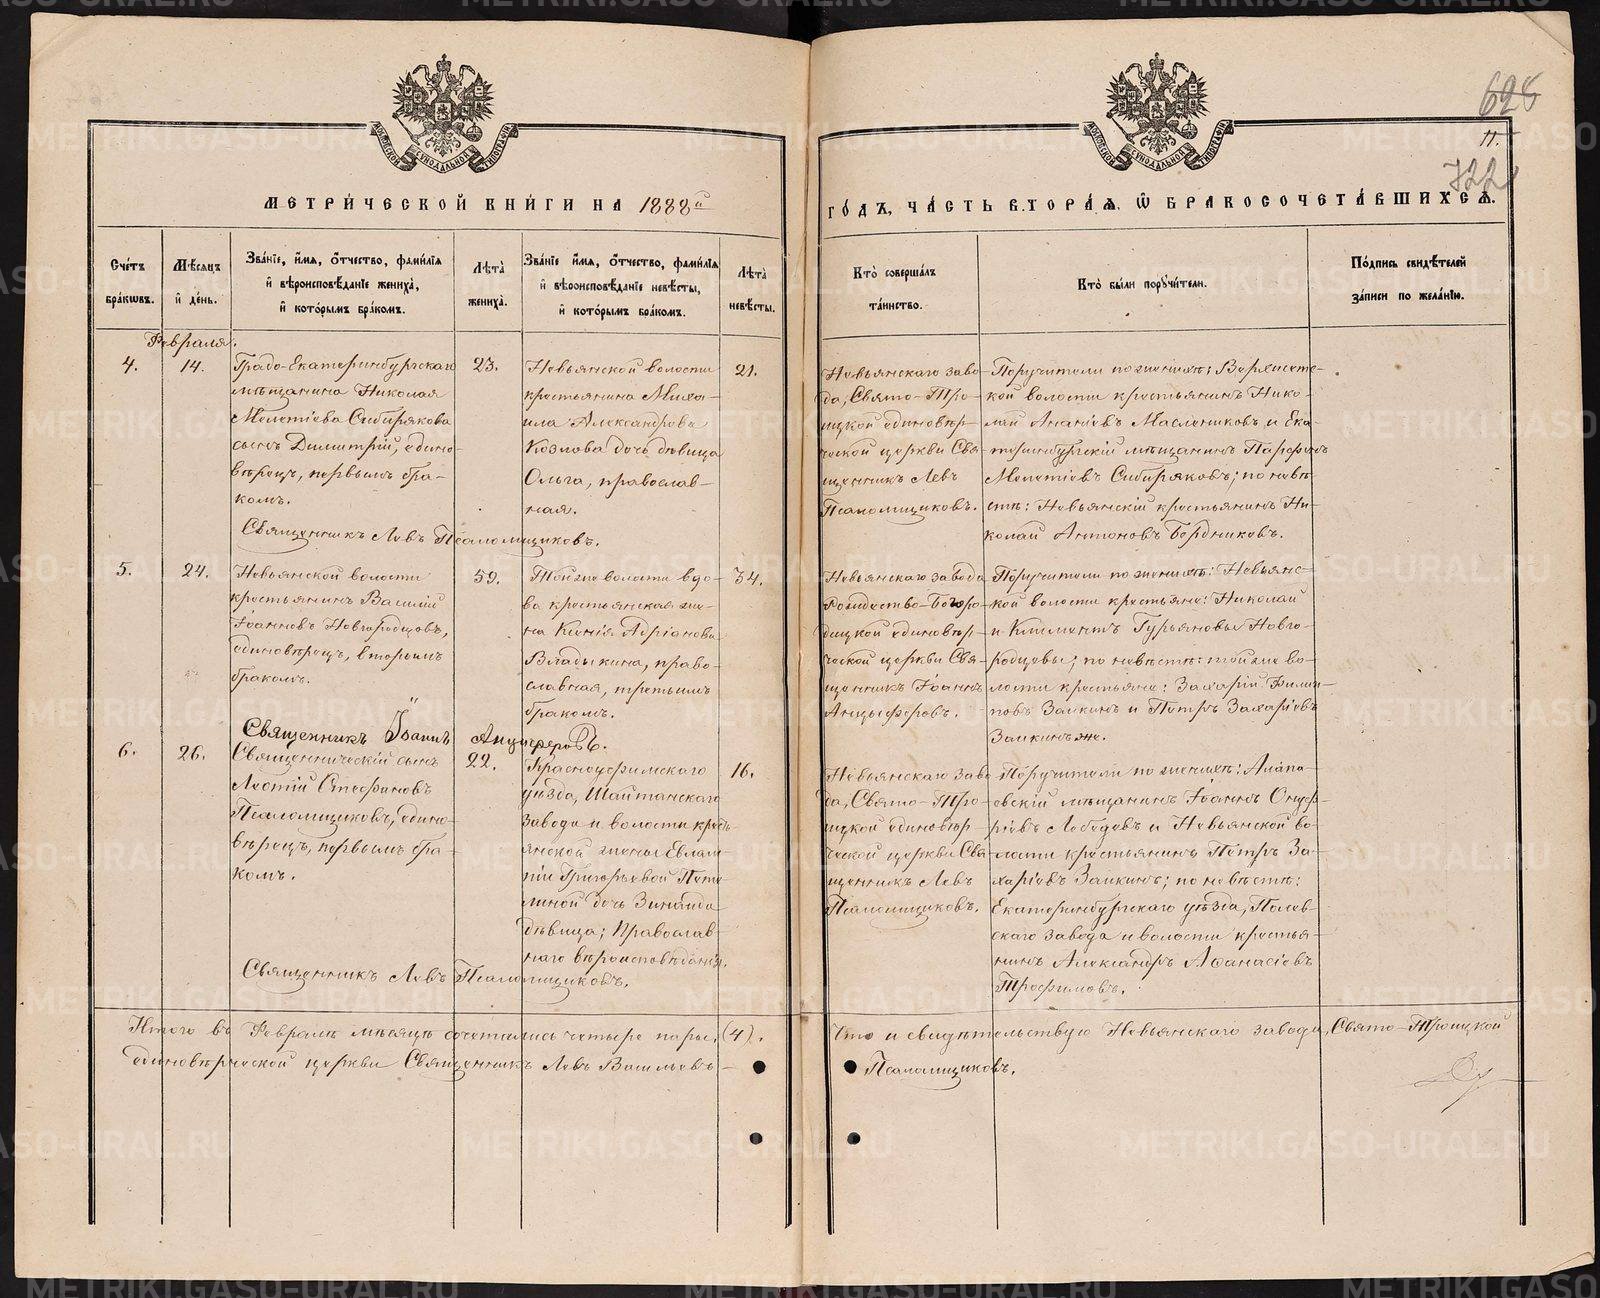 628
11.
722
МЕТРИ́ЧЕСКОЙ КНИ́ГИ НА 1888й
ГО́ДЪ, ЧА́СТЬ ВТОРА́Ѧ, Ѽ БРАКОСОЧЕТА́ВШИХСѦ.
Сче́тъ бра́кѡвъ.
Мѣ́сяцъ и҆ де́нь.
Зва́нїе, и҆́мѧ, ѻ҆́тчество, фамі́лїѧ
и҆ вѣроисповѣ́данїе жениха̀,
и҆ кото́рымъ бра́комъ.
Лѣта̀ жениха̀.
Зва́нїе и҆́мѧ, ѻ҆́тчество, фамі́лїѧ
и҆ вѣроисповѣ́данїе невѣ́сты,
и҆ кото́рымъ бра́комъ.
Лѣта̀ невѣ́сты.
Кто̀ соверша́лъ
та́инство.
Кто̀ бы́ли порꙋчи́тели.
По́дпись свидѣ́телей
за́писи по жела́нїю.
Февраля.
4.
14.
Градо-Екатеринбургскаго
мѣщанина Николая
Мелетіева Сибирякова
сынъ Димитрій, едино-
вѣрецъ, первымъ бра-
комъ.
23.
Невьянской волости
крестьянина Миха-
ила Александрова
Козлова дочь дѣвица
Ольга, православ-
ная.
21.
Невьянскаго заво-
да, Свято-Тро-
ицкой единовѣр-
ческой церкви Свя-
щенникъ Левъ
Псаломщиковъ.
Поручители по женихѣ: Верхисетс-
кой волости крестьянинъ Нико-
лай Ананіевъ Маслениковъ и Ека-
теринбургскій мѣщанинъ Парфенъ
Мелетіевъ Сибиряковъ; по невѣ-
стѣ: Невьянскій крестьянинъ Ни-
колай Антоновъ Бердниковъ.
Священникъ Левъ Псаломщиковъ.
5.
24.
Невьянской волости
крестьянинъ Василій
Іоанновъ Новгородцовъ,
единовѣрецъ, вторымъ
бракомъ.
59.
Той же волости вдо-
ва крестьянская же-
на Ксенія Адріонова
Владыкина, право-
славная, третьимъ
бракомъ.
34.
Невьянскаго завода
Рождество-Богоро-
дицкой единовѣр-
ческой церкви Свя-
щенникъ Іоаннъ
Анцыферовъ.
Поручители по женихѣ: Невьянс-
кой волости крестьяне: Николай
и Климентъ Гурьяновы Новго-
родцевы; по невѣстѣ: той же во-
лости крестьяне: Захарій Филип-
повъ Заикинъ и Петръ Захаріевъ
Заикинъ же.
Священникъ Іоаннъ Анцыферовъ.
6.
26.
Священническій сынъ
Леонтій Стефановъ
Псаломщиковъ, едино-
вѣрецъ, первымъ бра-
комъ.
22.
Красноуфимскаго
уѣзда, Шайтанскаго
завода и волости кресть-
янской жены Евлам-
піи Григорьевой
дочь Зинаида
дѣвица; Православ-
наго вѣроисповѣданія.
16.
Невьянскаго заво-
да, Свято-Тро-
ицкой единовѣр-
ческой церкви Свя-
щенникъ Левъ
Псаломщиковъ.
Поручители по женихѣ: Алапа-
евскій мѣщанинъ Іоаннъ Онуф-
ріевъ Лебедевъ и Невьянской во-
лости крестьянинъ Петръ За-
харіевъ Заикинъ; по невѣстѣ:
Екатеринбургскаго уѣзда, Полев-
скаго завода и волости крестья-
нинъ Александръ Афанасіевъ
Трофимовъ.
Священникъ Левъ Псаломщиковъ.
Итого въ Февралѣ мѣсяцѣ сочетались четыре пары. (4).
Что и свидѣтельствую Невьянскаго завода, Свято-Троицкой
единовѣрческой церкви Священникъ Левъ Васильевъ
Псаломщиковъ.
METRIKI.GASO-URAL.RU